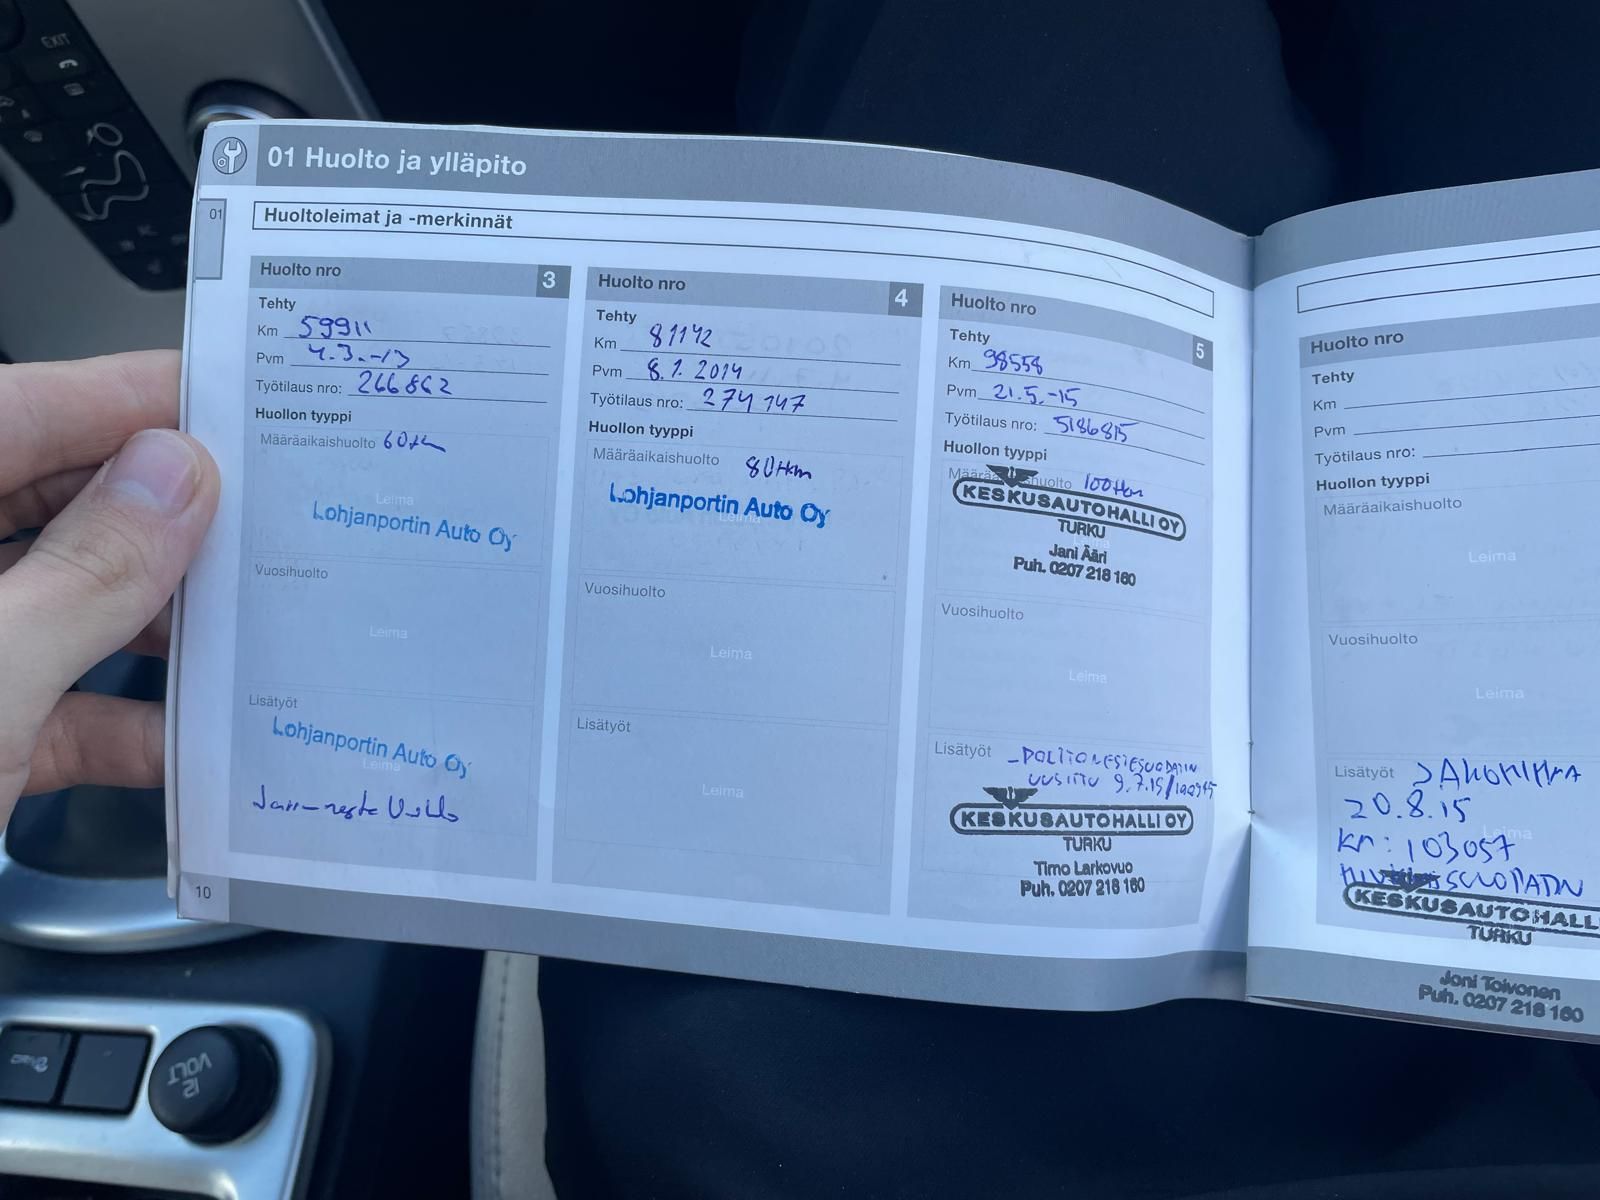 EXIT
01 Huolto ja ylläpito
01
Huoltoleimat ja -merkinnät
Huolto nro 3
Tehty
Km 59911
Pvm 4.3.-13
Työtilaus nro: 266862
Huollon tyyppi
Määräaikaishuolto 60tkm
Leima
Lohjanportin Auto Oy
Vuosihuolto
Leima
Lisätyöt
Lohjanportin Auto Oy
Leima
10
Huolto nro 4
Tehty
Km 81142
Pvm 8.1.2014
Työtilaus nro: 274147
Huollon tyyppi
Määräaikaishuolto 80tkm
Lohjanportin Auto Oy
Leima
Vuosihuolto
Leima
Lisätyöt
Leima
Huolto nro 5
Tehty
Km 98558
Pvm 21.5.-15
Työtilaus nro: 5186815
Huollon tyyppi
Määräaikaishuolto 100tkm
KESKUSAUTOHALLI OY
TURKU
Jani Ääri
Puh. 0207 218 160
Vuosihuolto
Leima
Lisätyöt
UUSITTU 9.7.15
KESKUSAUTOHALLI OY
TURKU
Timo Larkovuo
Puh. 0207 218 160
Huolto nro
Tehty
Km
Pvm
Työtilaus nro:
Huollon tyyppi
Määräaikaishuolto
Leima
Vuosihuolto
Leima
Lisätyöt
20.8.15
Leima
KM: 103057
KESKUSAUTOHALL
TURKU
Joni Toivonen
Puh. 0207 218 160
12
VOLT